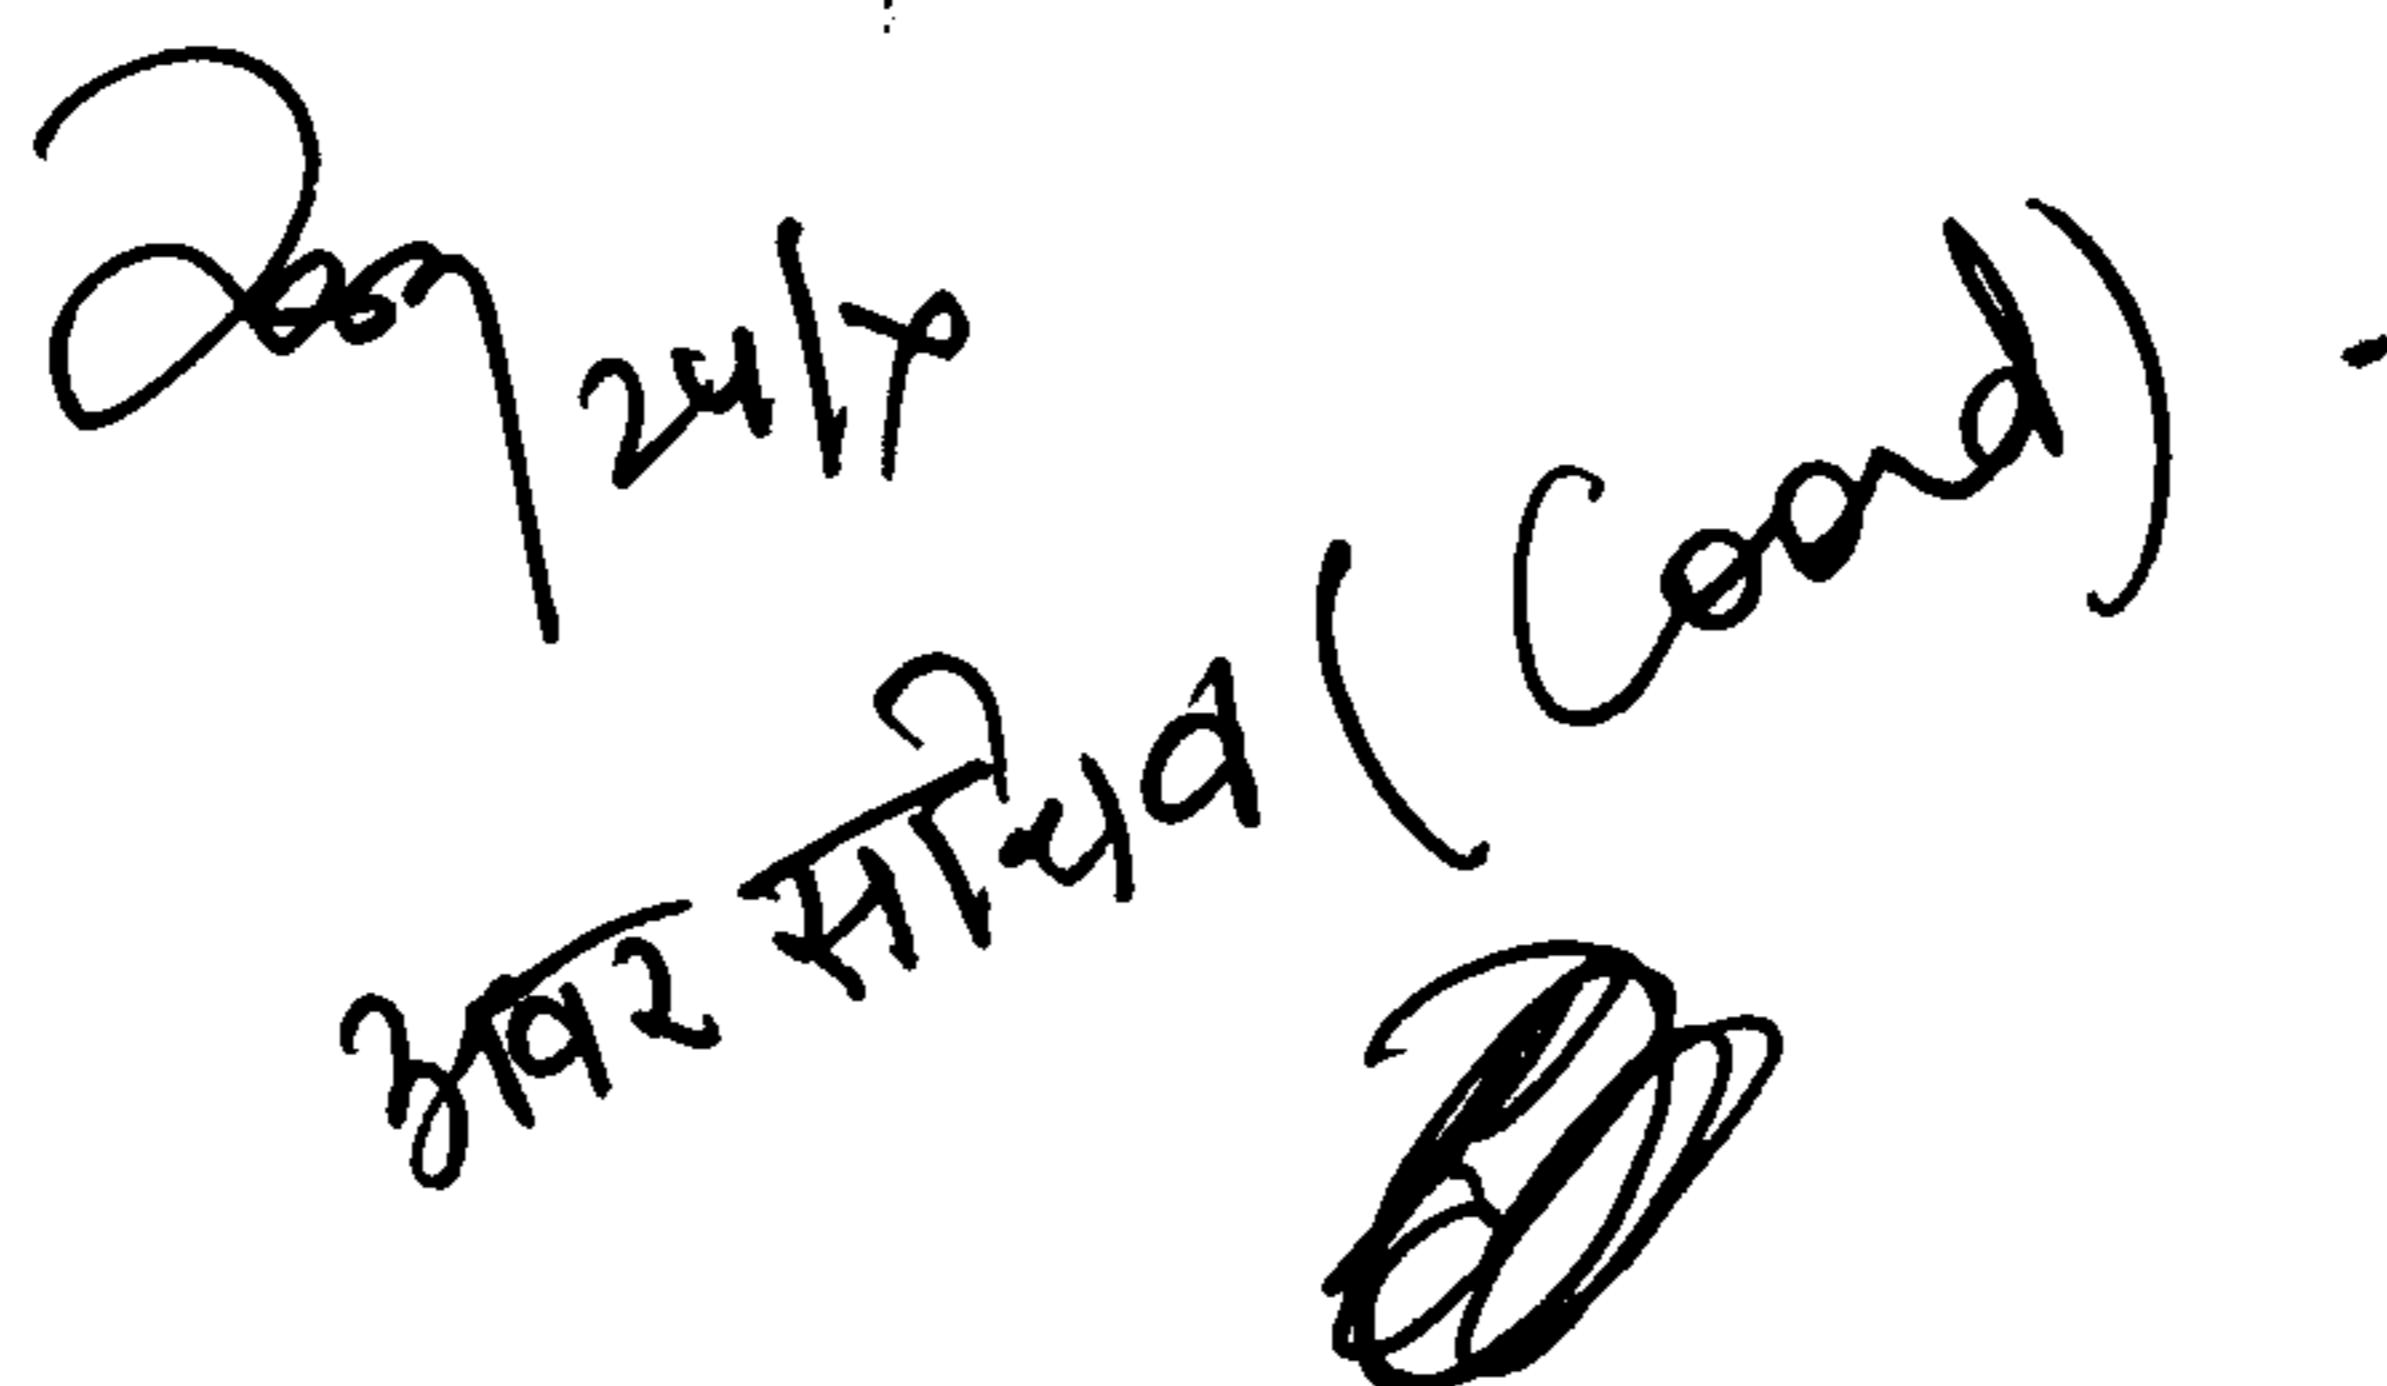 24/8
अवर सचिव (Coord)